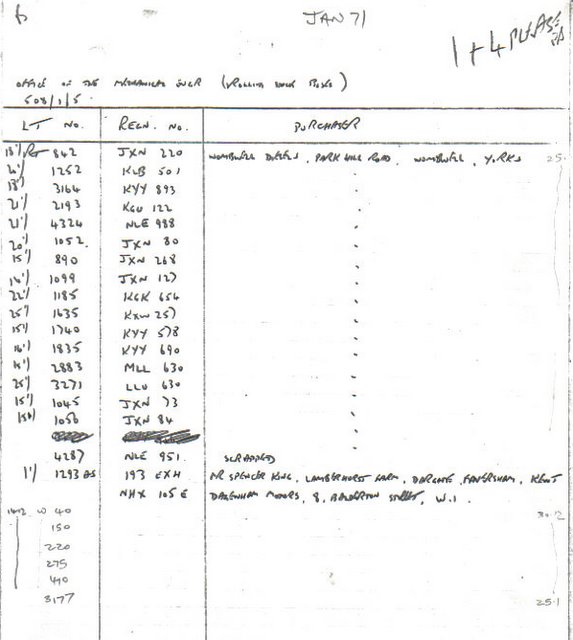 JAN 71
1 + 4 PLEASE
OFFICE OF THE MECHANICAL ENGR (ROLLING STOCK BUSES)
508/1/5
LT NO. REGN. NO. PURCHASER
18/1 842 JXN 220 WOMBWELL DIESELS, PARK HILL ROAD, WOMBWELL, YORKS 25.
20/1 1252 KLB 501 "
18/1 3164 KYY 893 "
21/1 2193 KGU 122 "
21/1 4324 NLE 988 "
20/1 1052 JXN 80 "
15/1 890 JXN 268 "
14/1 1099 JXN 127 "
22/1 1185 KGK 654 "
25/1 1635 KXW 257 "
15/1 1740 KYY 578 "
14/1 1835 KYY 690 "
14/1 2883 MLL 630 "
25/1 3271 LLU 630 "
15/1 1045 JXN 73 "
15/1 1056 JXN 84 "
4287 NLE 951 SCRAPPED
1/1 1293 BS 193 EXH MR SPENCER KING, LAMBERHURST FARM, DARGATE, FAVERSHAM, KENT
NHX 105 E DAGENHAM MOTORS, 8, BALDERTON STREET, W.1.
W 40 30.12
150
220
275
410
3177 25.1